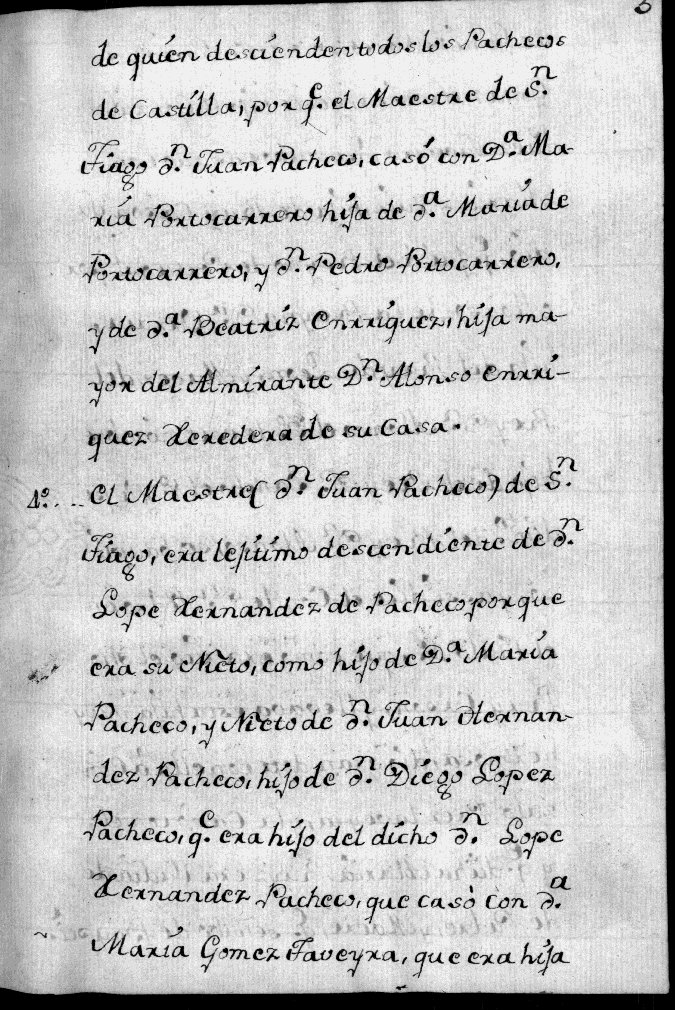 5
de quien descienden todos los Pachecos
de Castilla, por q.^e el Maestre de S.^n
Tiago d.^n Juan Pacheco, casó con D.^a Ma-
ria Portocarrero hija de d.^a María de
Portocarrero, y d.^n Pedro Portocarrero,
y de d.^a Beatriz Enrriquez, hija ma-
yor del Almirante D.^n Alonso Enrri-
quez Heredera de su Casa.
4.^o... El Maestre ( d.^n Juan Pacheco) de S.^n
Tiago, era lejitimo descendiente de d.^n
Lope Hernandez de Pacheco porque
era su Nieto, como hijo de D.^a María
Pacheco, y Nieto de d.^n Juan Hernan-
dez Pacheco, hijo de d.^n Diego Lopez
Pacheco, q.^e era hijo del dicho d.^n Lope
Hernandez Pacheco, que casò con d.^a
María Gomez Taveyra, que era hija